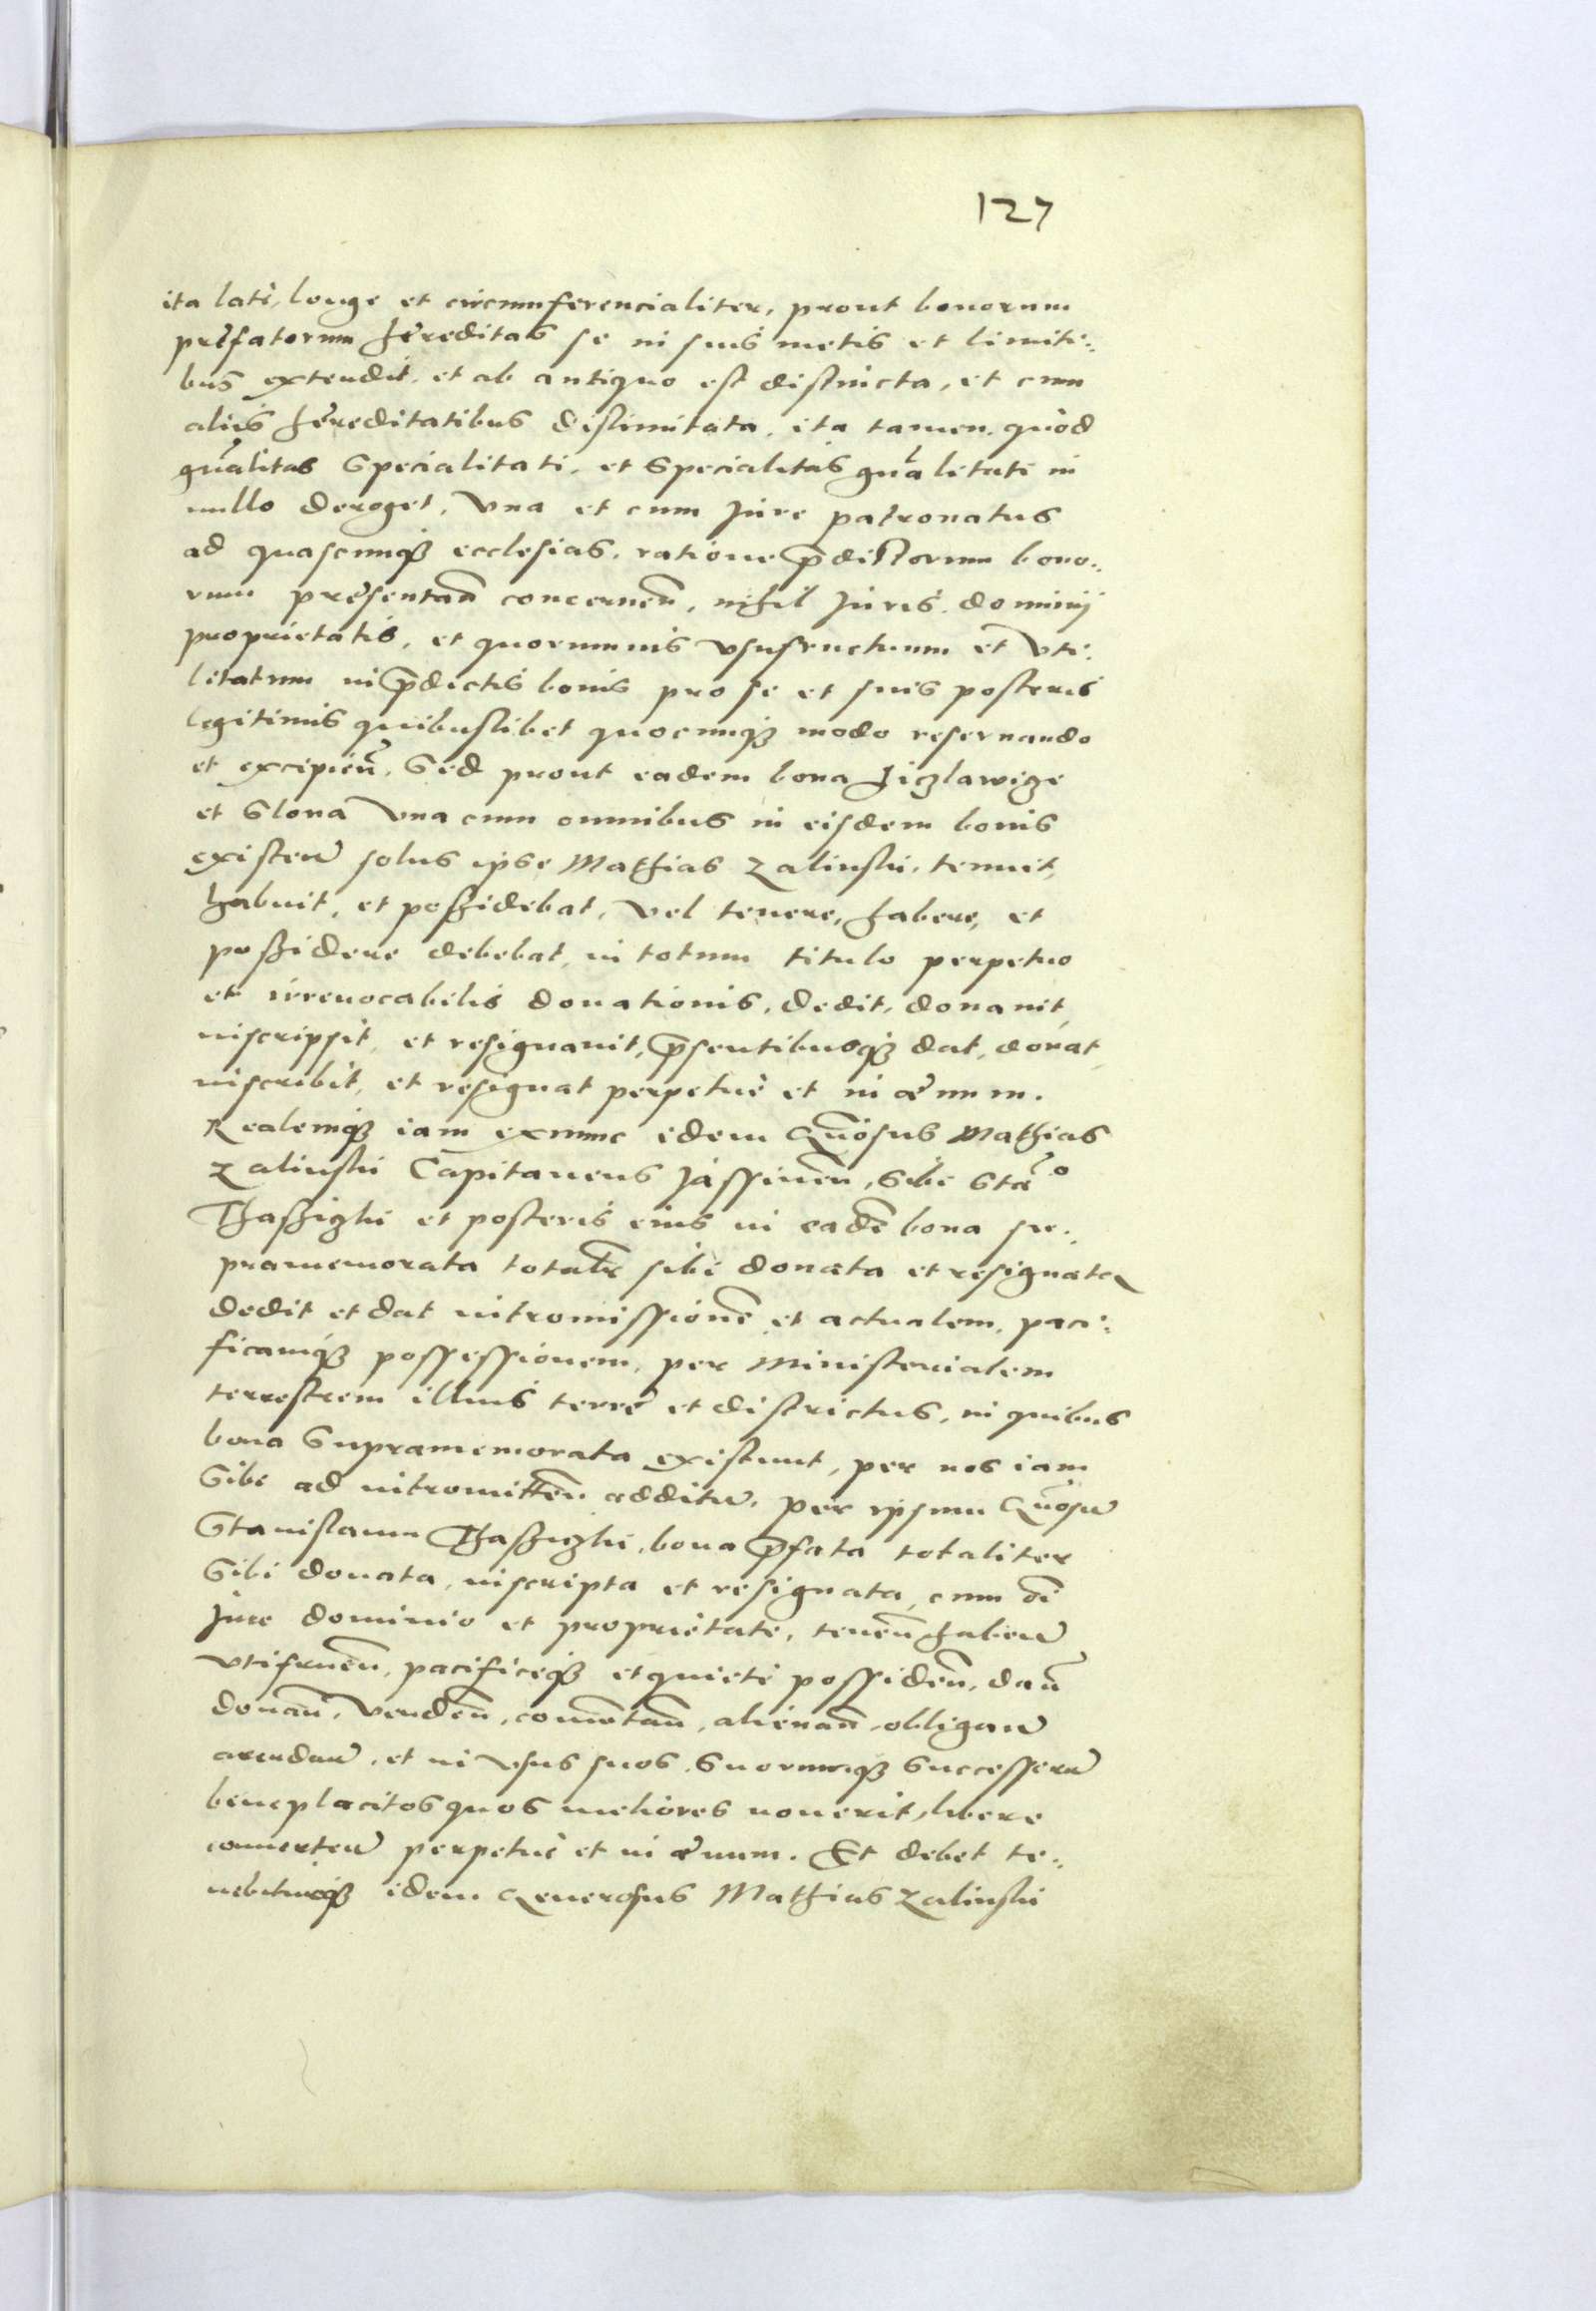 127
ita latè, longe et circumferencialiter, prout bonorum
prefatorum hereditas se in suis metis et limiti:
bus extendit, et ab antiquo est distincta, et cum
aliis hereditatibus dislimitata, ita tamen, quòd
gnalitas Specialitati, et Specialitas gnalitati in
nullo deroget, Vna et cum Jure patronatus
ad quascunq3 ecclesias, ratione p̄dictorum bono:
rum presentan̄ concernen̄, nihil Juris, dominij
proprietatis, et quorumuis vsufructuum et vti:
litatum in p̄dictis bonis pro se et suis posteris
legitimis quibuslibet quocunq3 modo reseruando
et excipien̄, Sed prout eadem bona
et Slona Vna cum omnibus in eisdem bonis
existen̄ solus ipse Mathias Zalinski, tenuit,
habuit, et possidebat, vel tenere, habere, et
possidere debebat, in totum titulo perpetuo
et irreuocabilis donationis, dedit, donauit,
inscripsit, et resignauit, p̄sentibusq3 dat, donat,
inscribit, et resignat perpetuè et in æuum.
Realemq3 iam exnunc idem Gn̄osus Mathias
Zalinski Capitaneus Jassinen̄, Sibi Stāo
et posteris eius in eadē bona su:
pramemorata totalr̄ sibi donata et resignata
dedit et dat intromissionē et actualem, paci:
ficamq3 possessionem, per Ministerialem
terrestrem illius terrè et districtus, in quibus
bona Supramemorata existunt, per nos iam
Sibi ad intromitten̄ additū, per ipsum Gn̄osū
Stanislaum bona p̄fata totaliter
Sibi donata, inscripta et resignata, cum oī
Jure dominio et proprietate, tenen̄ haben̄
vtifruen̄, pacificeq3 et quietè possiden̄, dan̄
donan̄, venden̄, comutan̄, alienan̄, obligan̄
arendan̄, et in vsus suos, Suorumq3 Successorū
beneplacitos quos meliores nouerit, libere
conuerten̄ perpetuè et in æuum. Et debet te:
nebiturq3 idem Generosus Mathias Zalinski